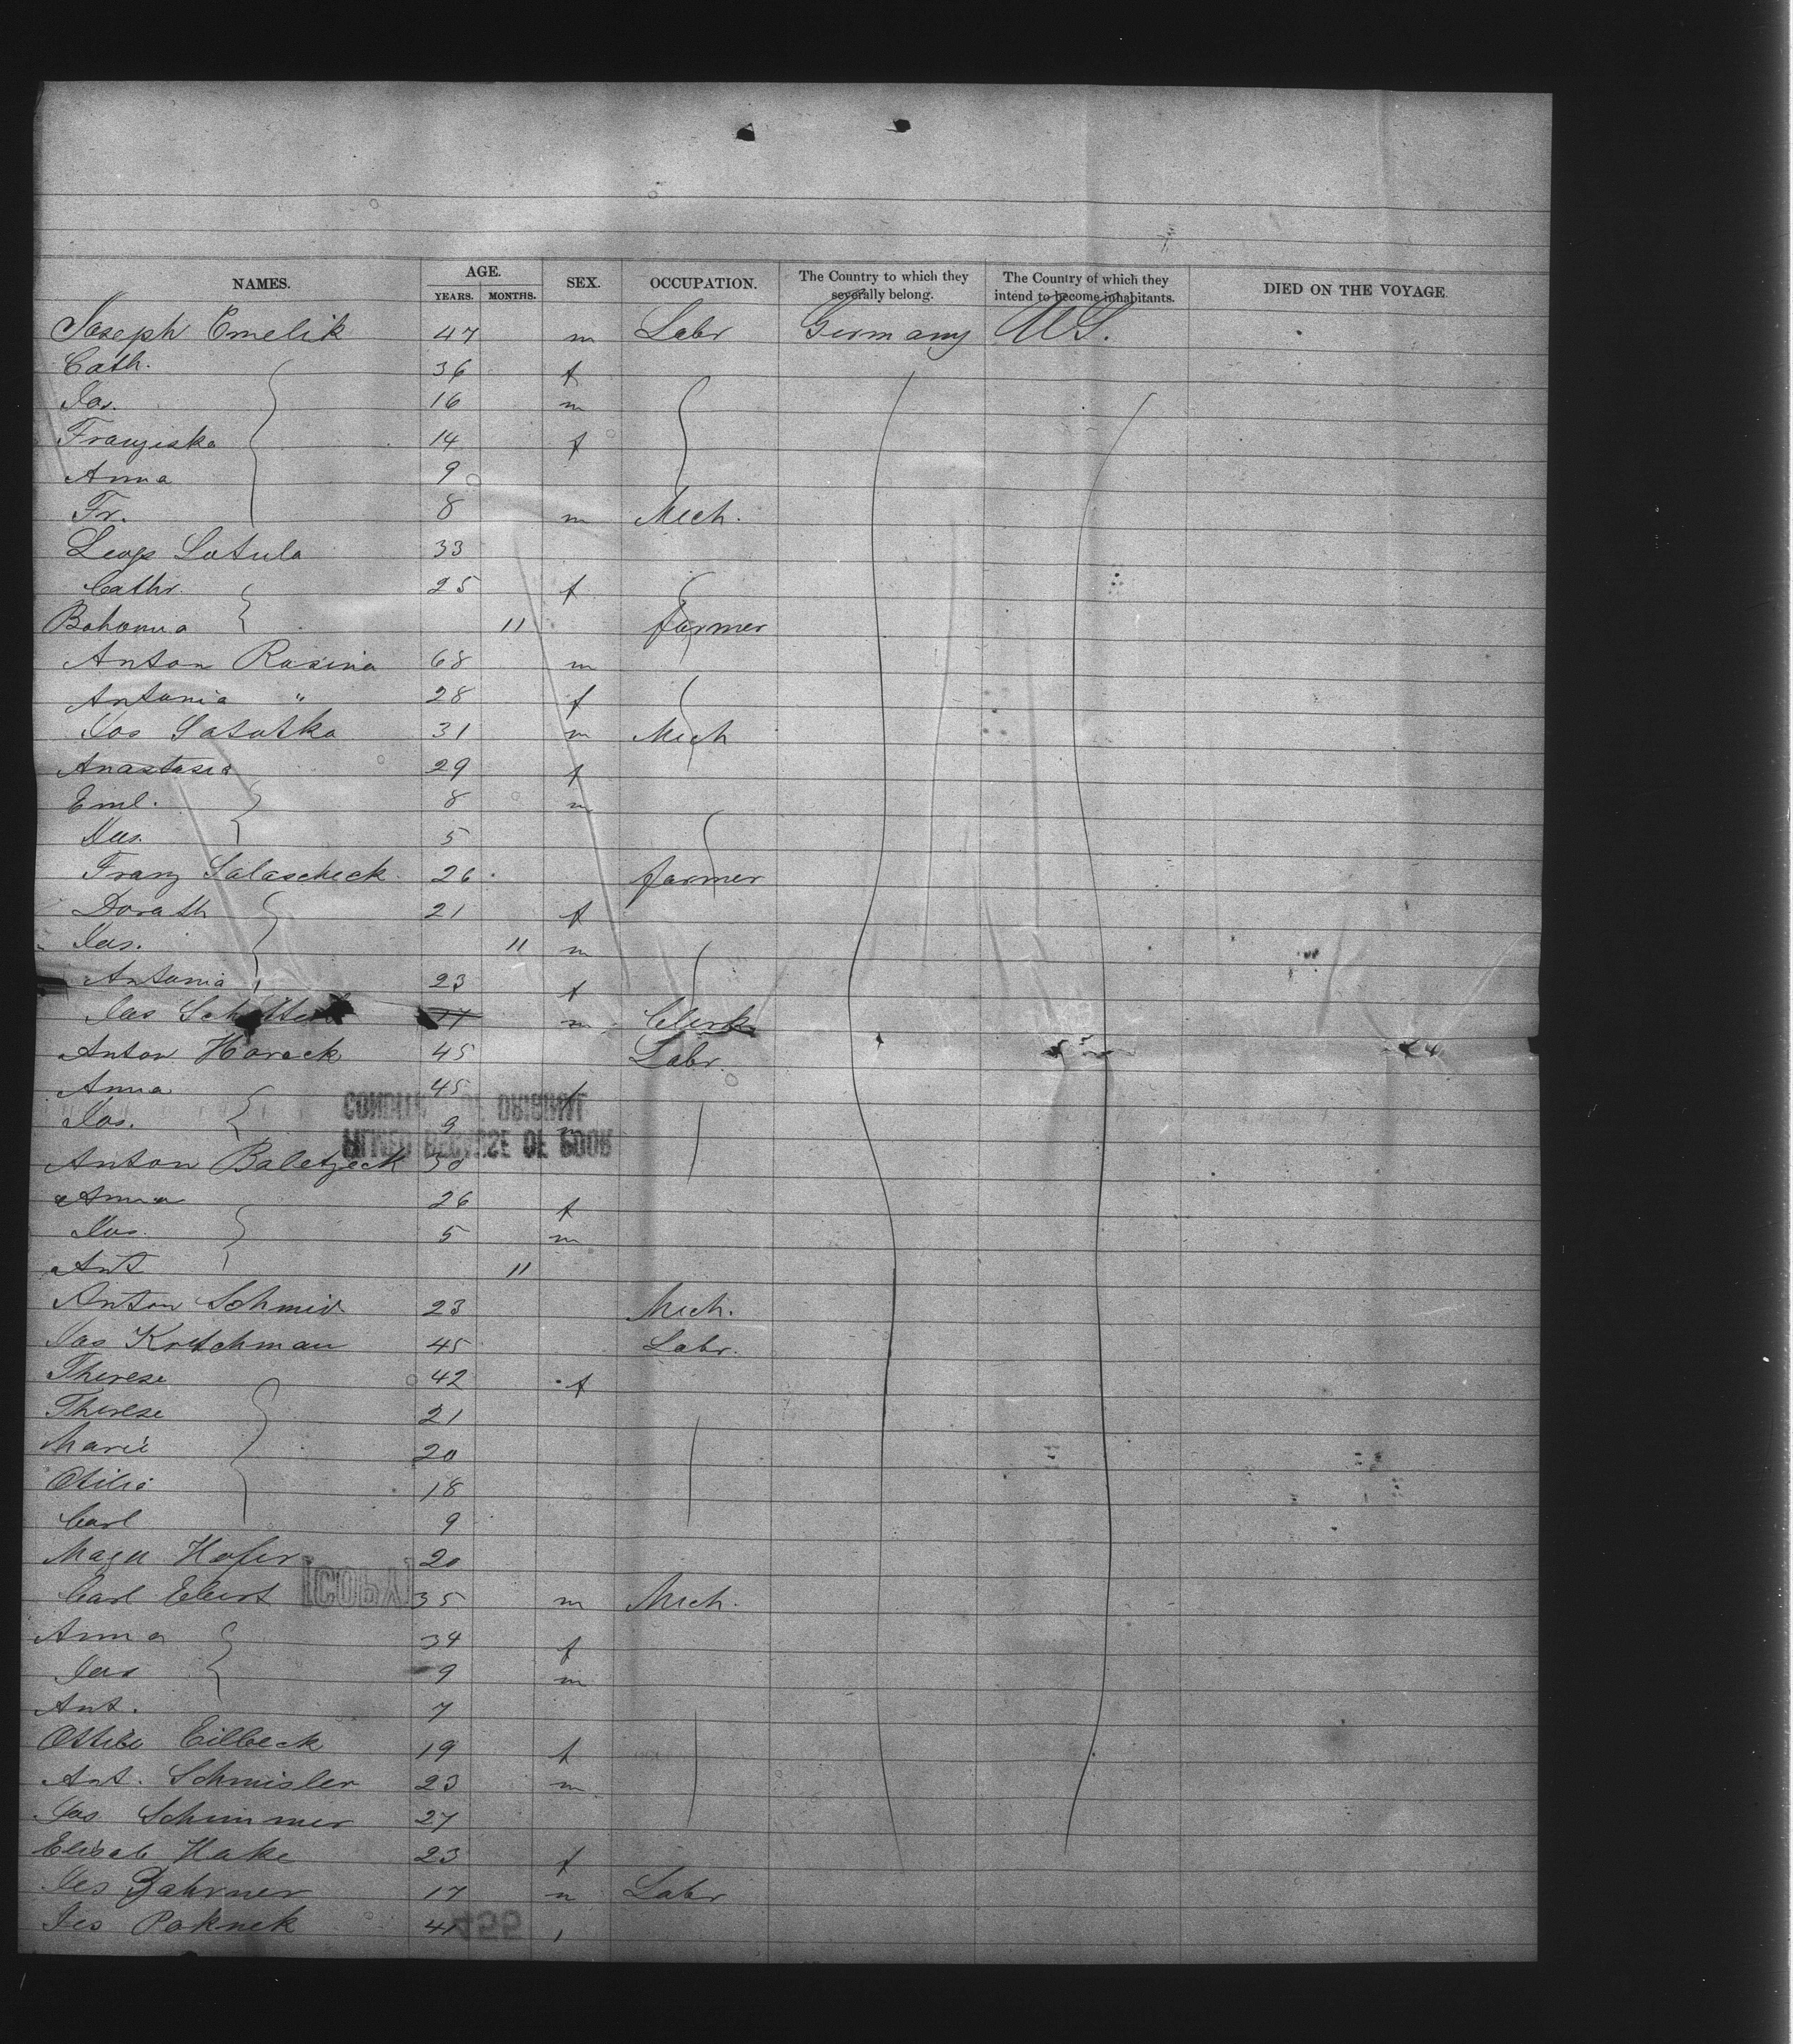 NAMES. AGE. YEARS. MONTHS. SEX. OCCUPATION. The Country to which they severally belong. The Country of which they intend to become inhabitants. DIED ON THE VOYAGE
Joseph Emelik 47 m Labr Germany U.S.
Cath. 36 f
Jos. 16 m
Franziska 14 f
Anna 9
Fr. 8 m Mech.
Leop Satula 33
Cathr. 25 f
Bohoma 11 farmer
Anton Rosina 68 m
Antonia " 28 f
Jos Satutka 31 m Mech
Anastasia 29 f
Eml. 8 m
Jos. 5
Franz Salascheck 26 farmer
Dorath 21 f
Jos. 11 m
Antonia 23 f
Jos m Clerk
Anton Horack 45 Labr.
Anna 45 f
Jos. 9 m
Anton Baletzeck 30
Anna 26 f
Jos. 5 m
Ant 11
Anton Schmid 23 Mech.
Jos Kretchman 45 Labr.
Therese 42 f
Therese 21
Marie 20
Otilia 18
Carl 9
Hofer 20
Carl Ebert 35 m Mech.
Anna 34 f
Jos 9 m
Ant. 7
Eilbeck 19 f
Ant. Schmisler 23 m
Jos Schimmer 27
Elisab Hake 23 f
Jos Zahrner 17 m Labr
Jos Poknek 41